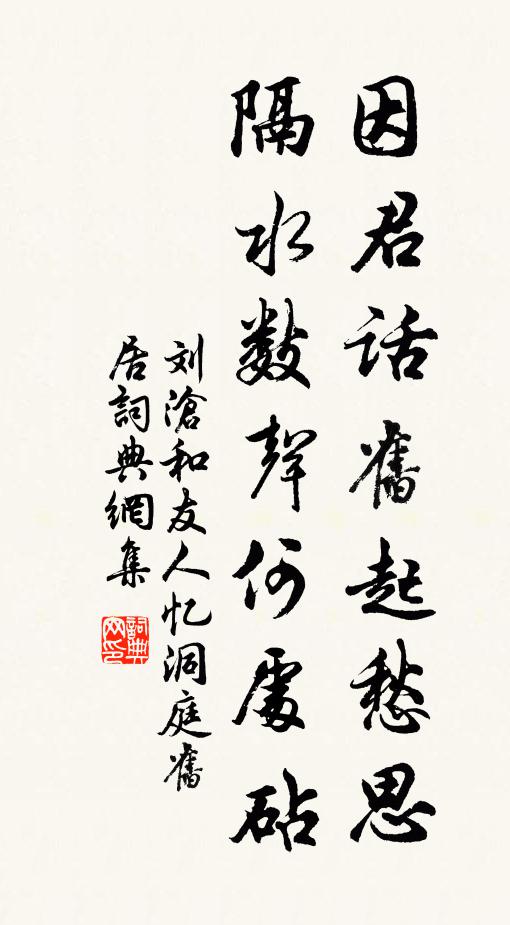 因君话舊起愁思
隔水数聲何處砧
刘滄和友人忆洞庭舊
居詞典網集
詞典
网印